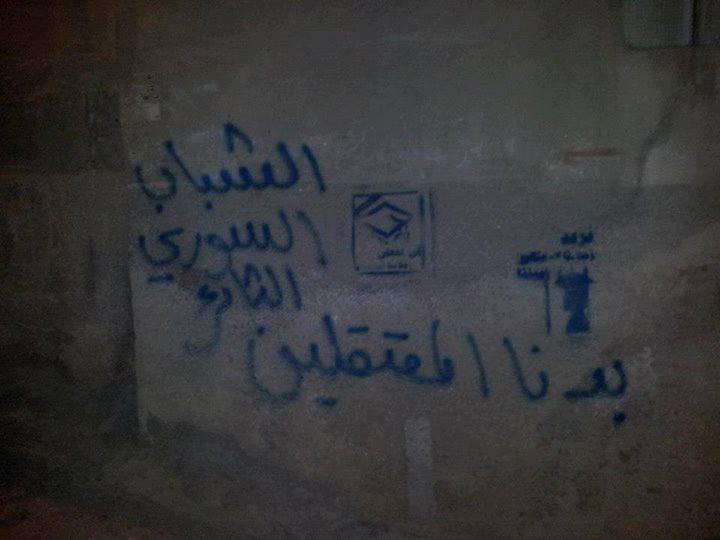 الشباب
السوري
الثائر
بدنا المعتقلين